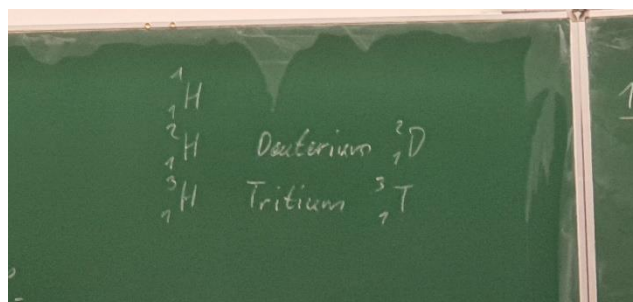 ¹₁H
²₁H Deuterium ²₁D
³₁H Tritium ³₁T